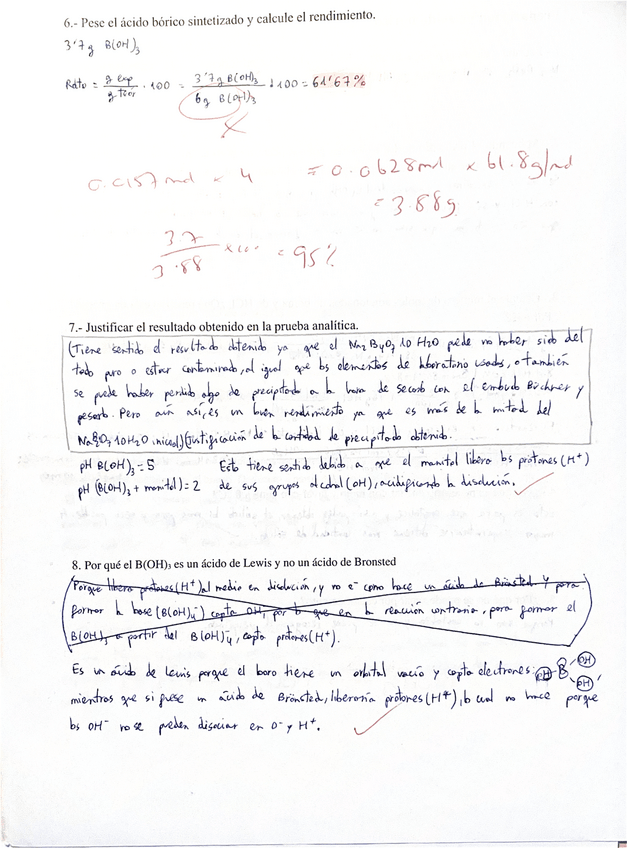 6.- Pese el ácido bórico sintetizado y calcule el rendimiento.
3'7 g B(OH)3
Rdto = g exp / g teor · 100 = 3'7 g B(OH)3 / 6 g B(OH)3 · 100 = 61'67%
0.0157 mol x 4 = 0.0628 mol x 61.8 g/mol
= 3.88 g
3.7 / 3.88 x 100 = 95%
7.- Justificar el resultado obtenido en la prueba analítica.
(Tiene sentido el resultado obtenido ya que el Na2B4O7 10 H2O puede no haber sido del
todo puro o estar contaminado, al igual que los elementos de laboratorio usados, o también
se puede haber perdido algo de precipitado a la hora de secarlo con el embudo Büchner y
pesarlo. Pero aún así, es un buen rendimiento ya que es más de la mitad del
10H2O inicial.) (Justificación de la cantidad de precipitado obtenido.
pH B(OH)3 = 5 Esto tiene sentido debido a que el manitol libera los protones (H+)
pH (B(OH)3 + manitol) = 2 de sus grupos alcohol (OH), acidificando la disolución.
8. Por qué el B(OH)3 es un ácido de Lewis y no un ácido de Bronsted
Porque libera protones (H+) al medio en disolución, y no e- como hace un ácido de Brönsted. Y para
formar la base (B(OH)4-) capta OH, por lo que en la reacción contraria, para formar el
B(OH)3 a partir del B(OH)4-, capta protones (H+).
Es un ácido de Lewis porque el boro tiene un orbital vacío y capta electrones: OH B OH OH ,
mientras que si fuese un ácido de Brönsted, liberaría protones (H+), lo cual no hace porque
los OH- no se pueden disociar en O- y H+.